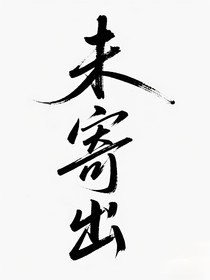 未寄出